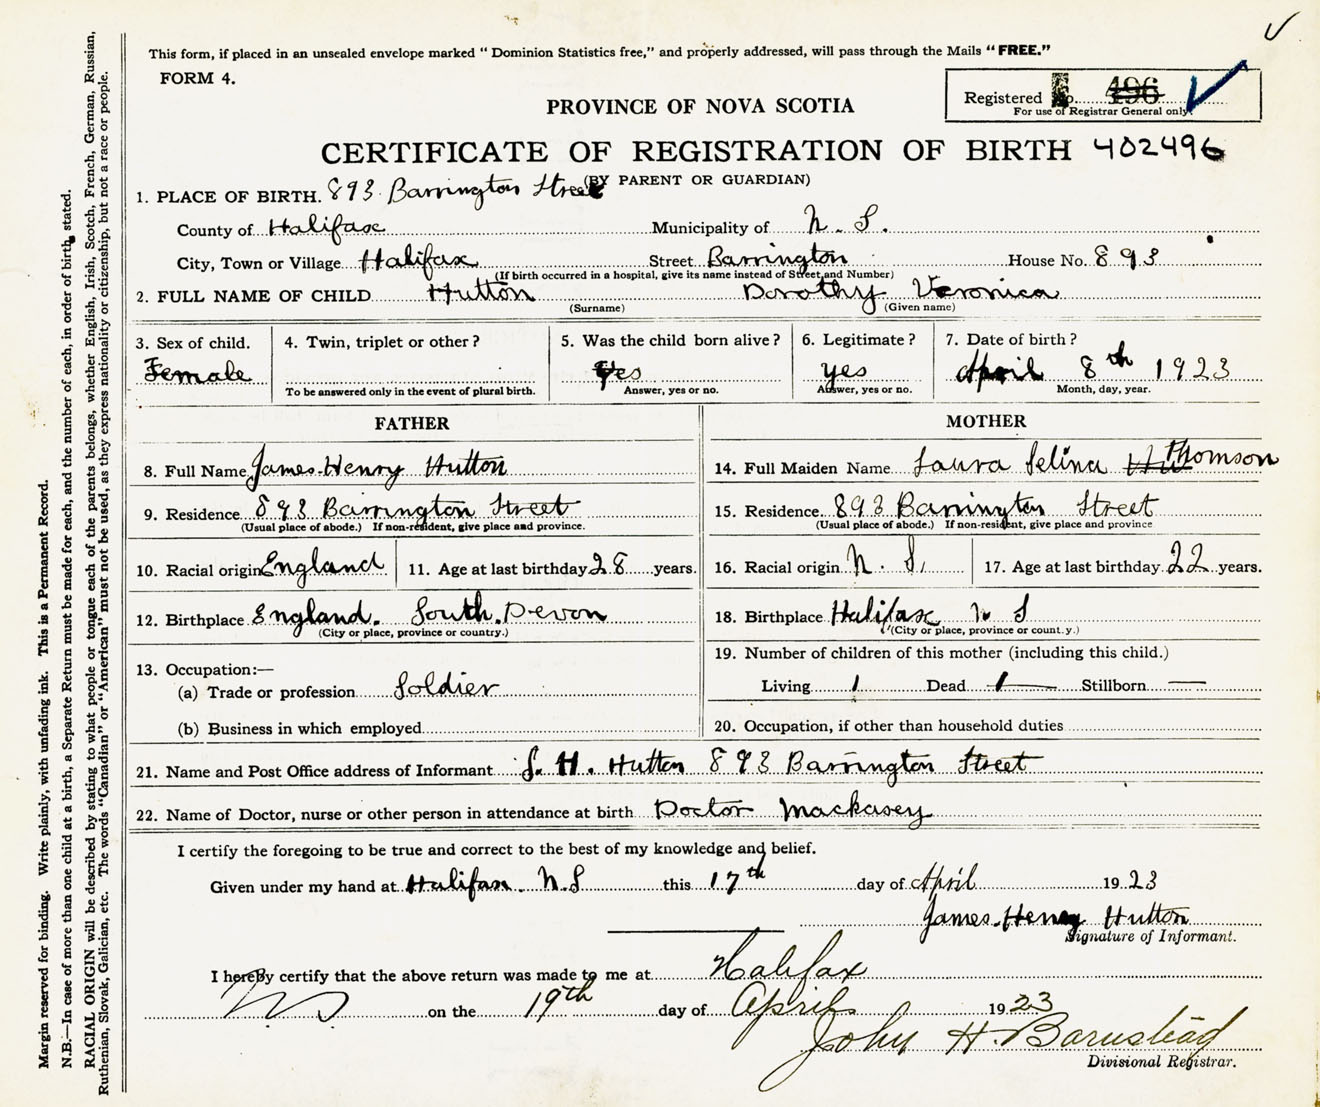 This form, if placed in an unsealed envelope marked "Dominion Statistics free," and properly addressed, will pass through the Mails "FREE."
FORM 4.
Registered No. 496
For use of Registrar General only.
PROVINCE OF NOVA SCOTIA
CERTIFICATE OF REGISTRATION OF BIRTH 402496
(BY PARENT OR GUARDIAN)
1. PLACE OF BIRTH. 893 Barrington Street
County of Halifax Municipality of N. S.
City, Town or Village Halifax Street Barrington House No. 893
(If birth occurred in a hospital, give its name instead of Street and Number)
2. FULL NAME OF CHILD Hutton Dorothy Veronica
(Surname) (Given name)
3. Sex of child. 4. Twin, triplet or other? 5. Was the child born alive? 6. Legitimate? 7. Date of birth?
Female Yes yes April 8th 1923
To be answered only in the event of plural birth. Answer, yes or no. Answer, yes or no. Month, day, year.
FATHER MOTHER
8. Full Name James Henry Hutton 14. Full Maiden Name Laura Selina Thomson
9. Residence 893 Barrington Street 15. Residence 893 Barrington Street
(Usual place of abode.) If non-resident, give place and province. (Usual place of abode.) If non-resident, give place and province
10. Racial origin England 11. Age at last birthday 28 years. 16. Racial origin N. S. 17. Age at last birthday 22 years.
12. Birthplace England. South Devon 18. Birthplace Halifax N S
(City or place, province or country.) (City or place, province or count.y.)
13. Occupation:— 19. Number of children of this mother (including this child.)
(a) Trade or profession Soldier Living 1 Dead 1 Stillborn —
(b) Business in which employed 20. Occupation, if other than household duties
21. Name and Post Office address of Informant J. H. Hutton 893 Barrington Street
22. Name of Doctor, nurse or other person in attendance at birth Doctor Mackasey
I certify the foregoing to be true and correct to the best of my knowledge and belief.
Given under my hand at Halifax. N.S this 17th day of April 1923
James Henry Hutton
Signature of Informant.
I hereBy certify that the above return was made to me at Halifax
NS on the 19th day of April 1923
John H. Barnstead
Divisional Registrar.
Margin reserved for binding. Write plainly, with unfading ink. This is a Permanent Record.
N.B.—In case of more than one child at a birth, a Separate Return must be made for each, and the number of each, in order of birth, stated.
RACIAL ORIGIN will be described by stating to what people or tongue each of the parents belongs, whether English, Irish, Scotch, French, German, Russian,
Ruthenian, Slovak, Galician, etc. The words "Canadian" or "American" must not be used, as they express nationality or citizenship, but not a race or people.